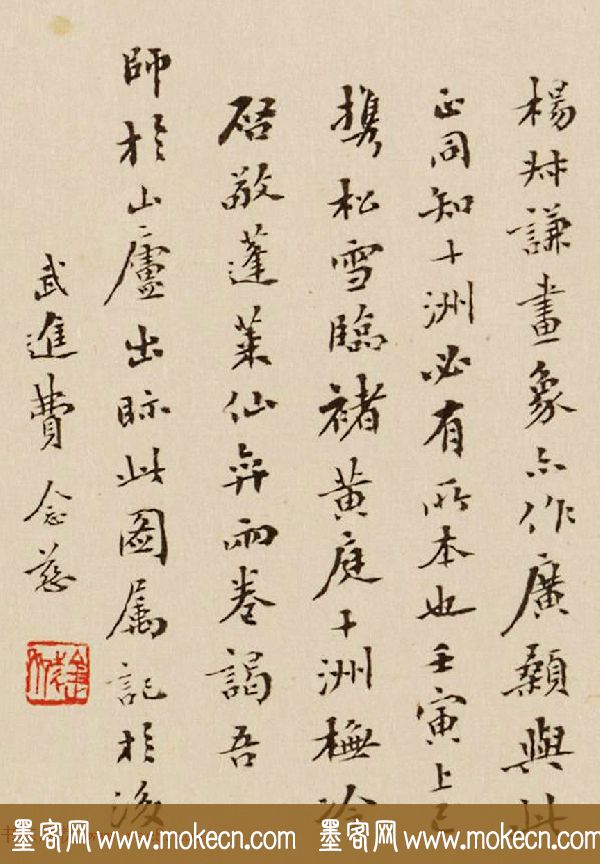 楊尗謙畫象亦作廣顙與此
正同知十洲必有所本也壬寅上巳
攜松雪臨褚黃庭十洲橅冷
啓敬蓬萊仙弈兩卷謁吾
師於山廬出眎此圖属記於後
武進費念慈
墨客网 www.mokecn.com 墨客网 www.mokecn.com